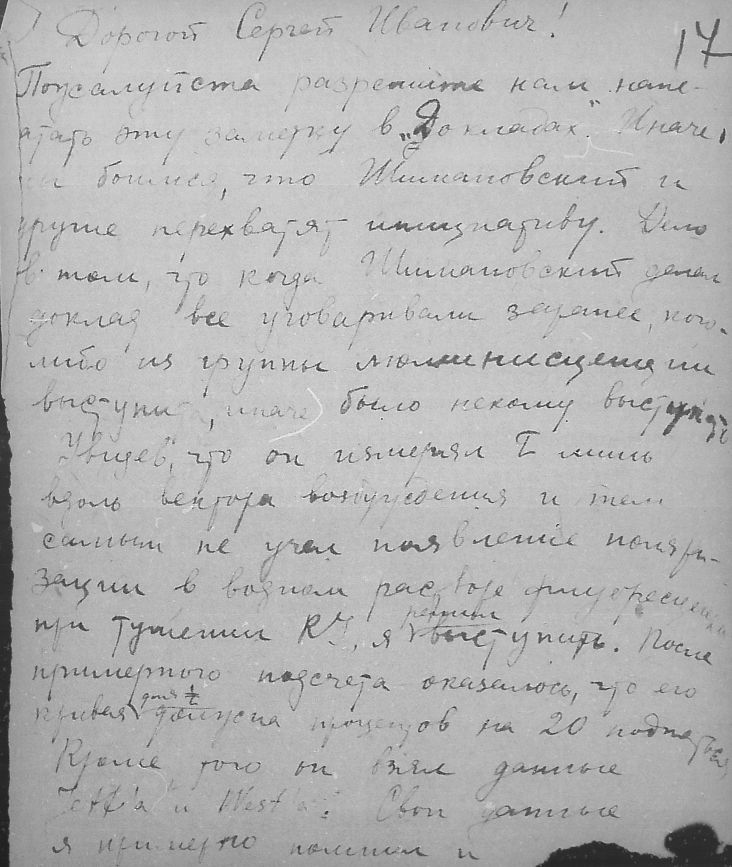 Дорогой Сергей Иванович!
17
Пожалуйста разрешите нам напе-
атать эту заметку в „Докладах". Иначе,
ы боимся, что Шишловский и
другие перехватят инициативу. Дело
в том, что когда Шишловский делал
доклад все уговаривали заранее, кого-
либо из группы люминисценции
выступить, иначе было некому выступать
Увидев, что он измерял I лишь
вдоль вектора возбуждения и тем
самым не учел появление поляри-
зации в водном растворе флуоресцеина
при тушении KJ, я решил выступить. После
примерного подсчета оказалось, что его
кривая для 1/τ должна процентов на 20 подняться.
Кроме того он взял данные
Jett'a и West'a. Свои данные
я примерно помнил и